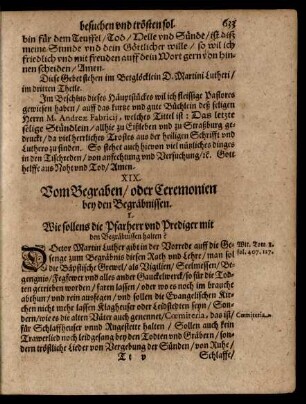 besuchen vnd trösten sol. 633
bin für dem Teuffel / Tod / Helle vnd Sünde / ist diß
meine Stunde vnd dein Göttlicher wille / so wil ich
friedlich vnd mit freuden auff dein Wort gern von hin
nen scheiden / Amen.
Diese Gebet stehen im Bergløcklein D. Martini Lutheri /
im dritten Theile.
Im Beschluß dieses Häuptstückes wil ich fleissige Pastores
gewiesen haben / auff das kurtze vnd gute Büchlein deß seligen
Herrn M. Andreæ Fabricij, welches Tittel ist: Das letzte
selige Stündlein / allhie zu Eißleben vnd zu Straßburg ge-
druckt / da viel herrlichen Trostes aus der heiligen Schrifft vnd
Luthero zu finden. So stehet auch hievon viel nützliches dinges
in den Tischreden / von anfechtung vnd Versuchung / ꝛc. Gott
helffe aus Noht vnd Tod / Amen.
XIX.
Vom Begraben / oder Ceremonien
bey den Begräbnissen.
I.
Wie sollens die Pfarherr vnd Prediger mit
den Begräbnissen halten?
DOctor Martin Luther gibt in der Vorrede auff die Ge-
senge zum Begräbnis diesen Rath vnd Lehre / man sol
die Bäpstische Grewel / als Vigilien / Seelmessen / Be-
gengnis / Fegfewer vnd alles ander Gauckelwerck / so für die Tod-
ten getrieben worden / faren lassen / oder wo es noch im brauche
abthun vnd rein aus fegen / vnd sollen die Evangelischen Kir-
chen nicht mehr lassen Klagheuser oder Leidstedten seyn / Son
dern / wie es die alten Väter auch genennet / Cœmiteria, das ist /
für Schlaffheuser vnnd Rugestette halten / Sollen auch kein
Trawerlied noch leidgesang bey den Todten vnd Gräbern / son-
dern tröstliche Lieder von Vergebung der Sünden / von Ruhe /
Schlaffe /
Wit. Tom 2.
fol. 407. 117.
Cœmiteria.